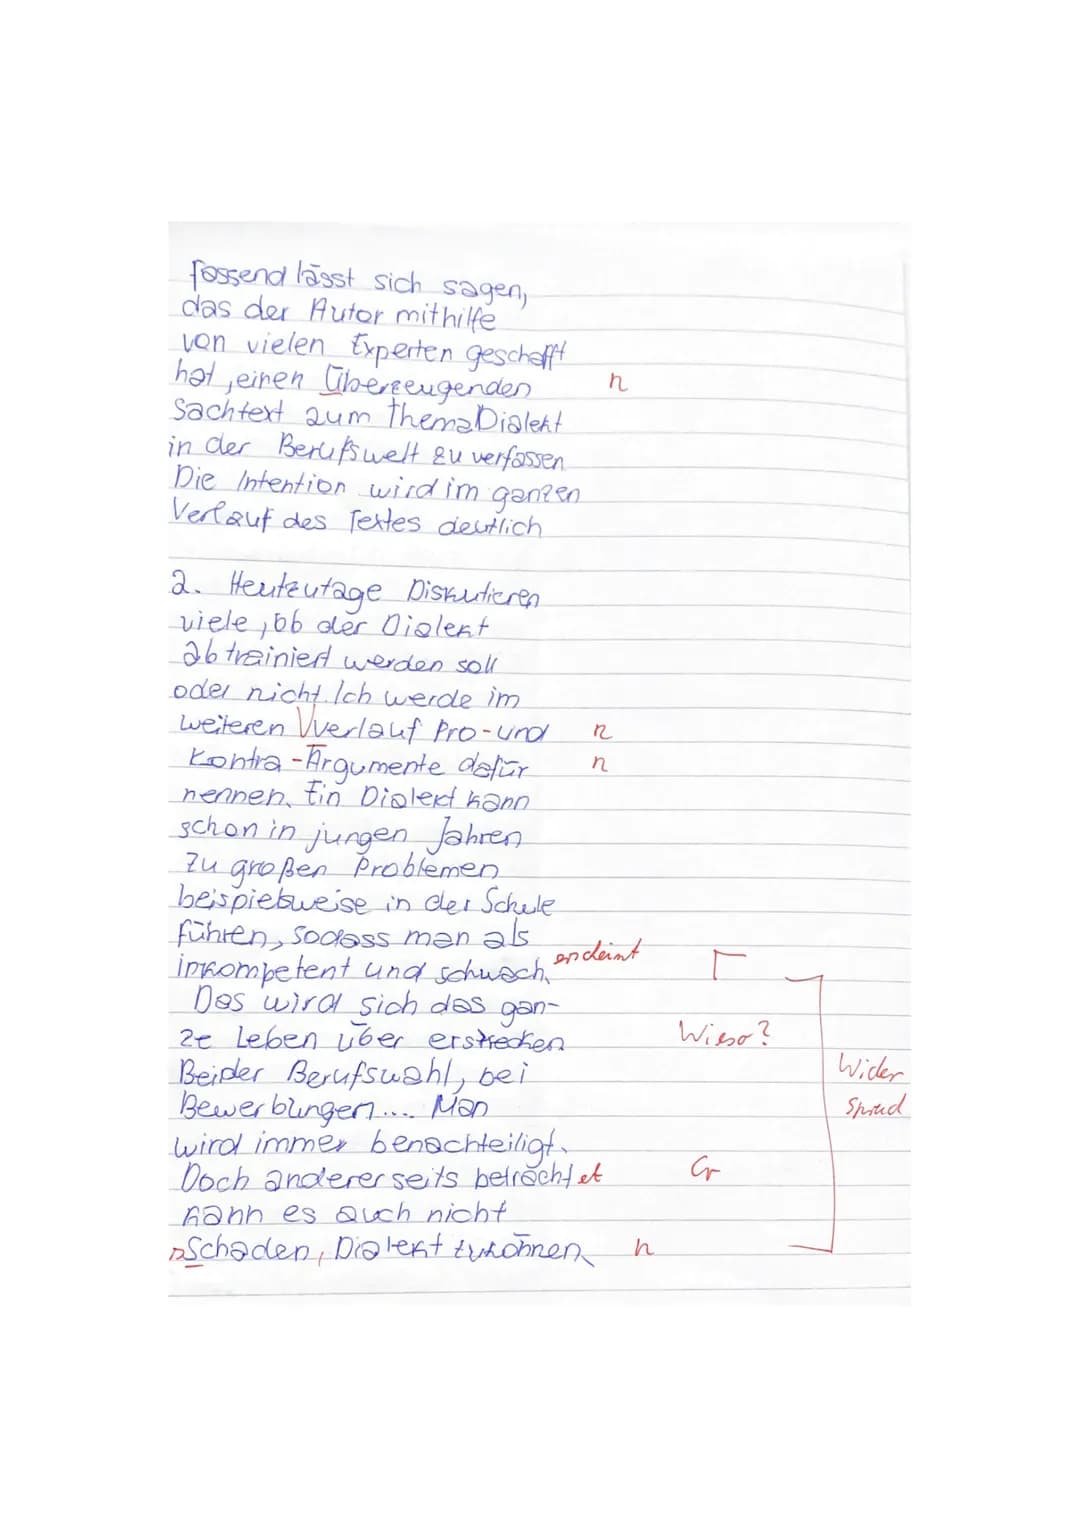 fassend lässt sich sagen,
das der Autor mithilfe
von vielen Experten geschafft
hat, einen Überzeugenden n
Sachtext zum thema Dialekt
in der Berufswelt zu verfassen
Die Intention wird im ganzen
Verlauf des Textes deutlich
2. Heutzutage Diskutieren
viele, ob der Dialekt
abtrainiert werden soll
oder nicht. Ich werde im
weiteren Vverlauf Pro-und n
Kontra-Argumente dafür n
nennen. Ein Dialekt kann
schon in jungen Jahren
zu großen Problemen
beispielsweise in der Schule
führen, sodass man als
inkompetent und schwach.
Das wird sich das gan-
ze Leben über erstrecken Wieso?
Bei der Berufswahl, bei Wider
Bewerbungen.... Man Spruch
wird immer benachteiligt.
Doch andererseits betrachtet Gr
kann es auch nicht
Schaden, Dialekt zu können n